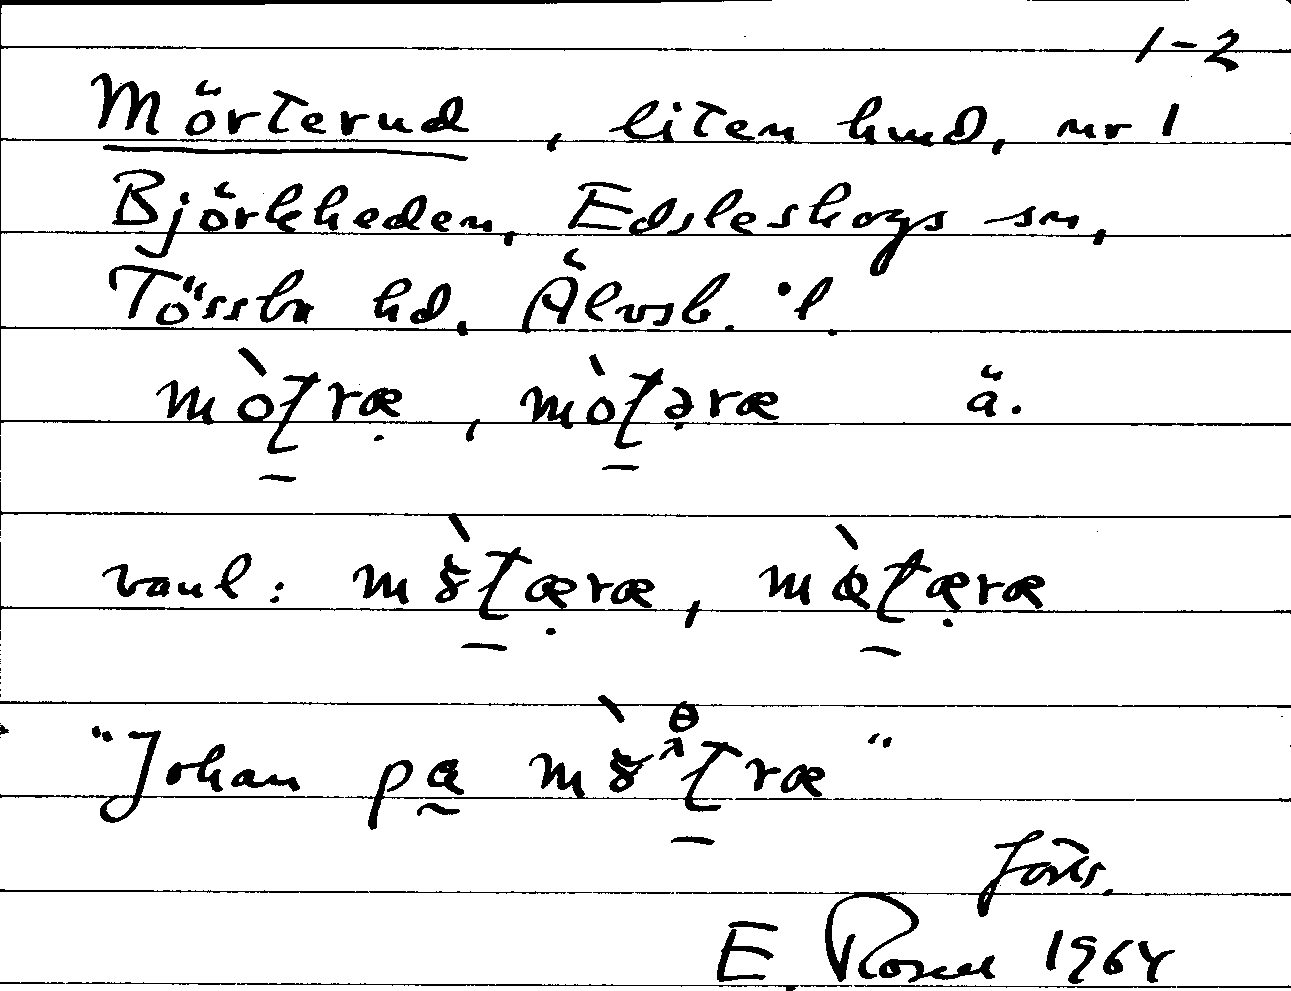 1-2
Mörterud, liten hmd, nr 1
Björkheden, Edsleskogs sn,
Tössbo hd. Älvsb. l.
mòʈræ, mòʈəræ ä.
vanl: mʈæræ, mʈæræ
"Johan på mʈræ"
forts.
E. Rosell 1964